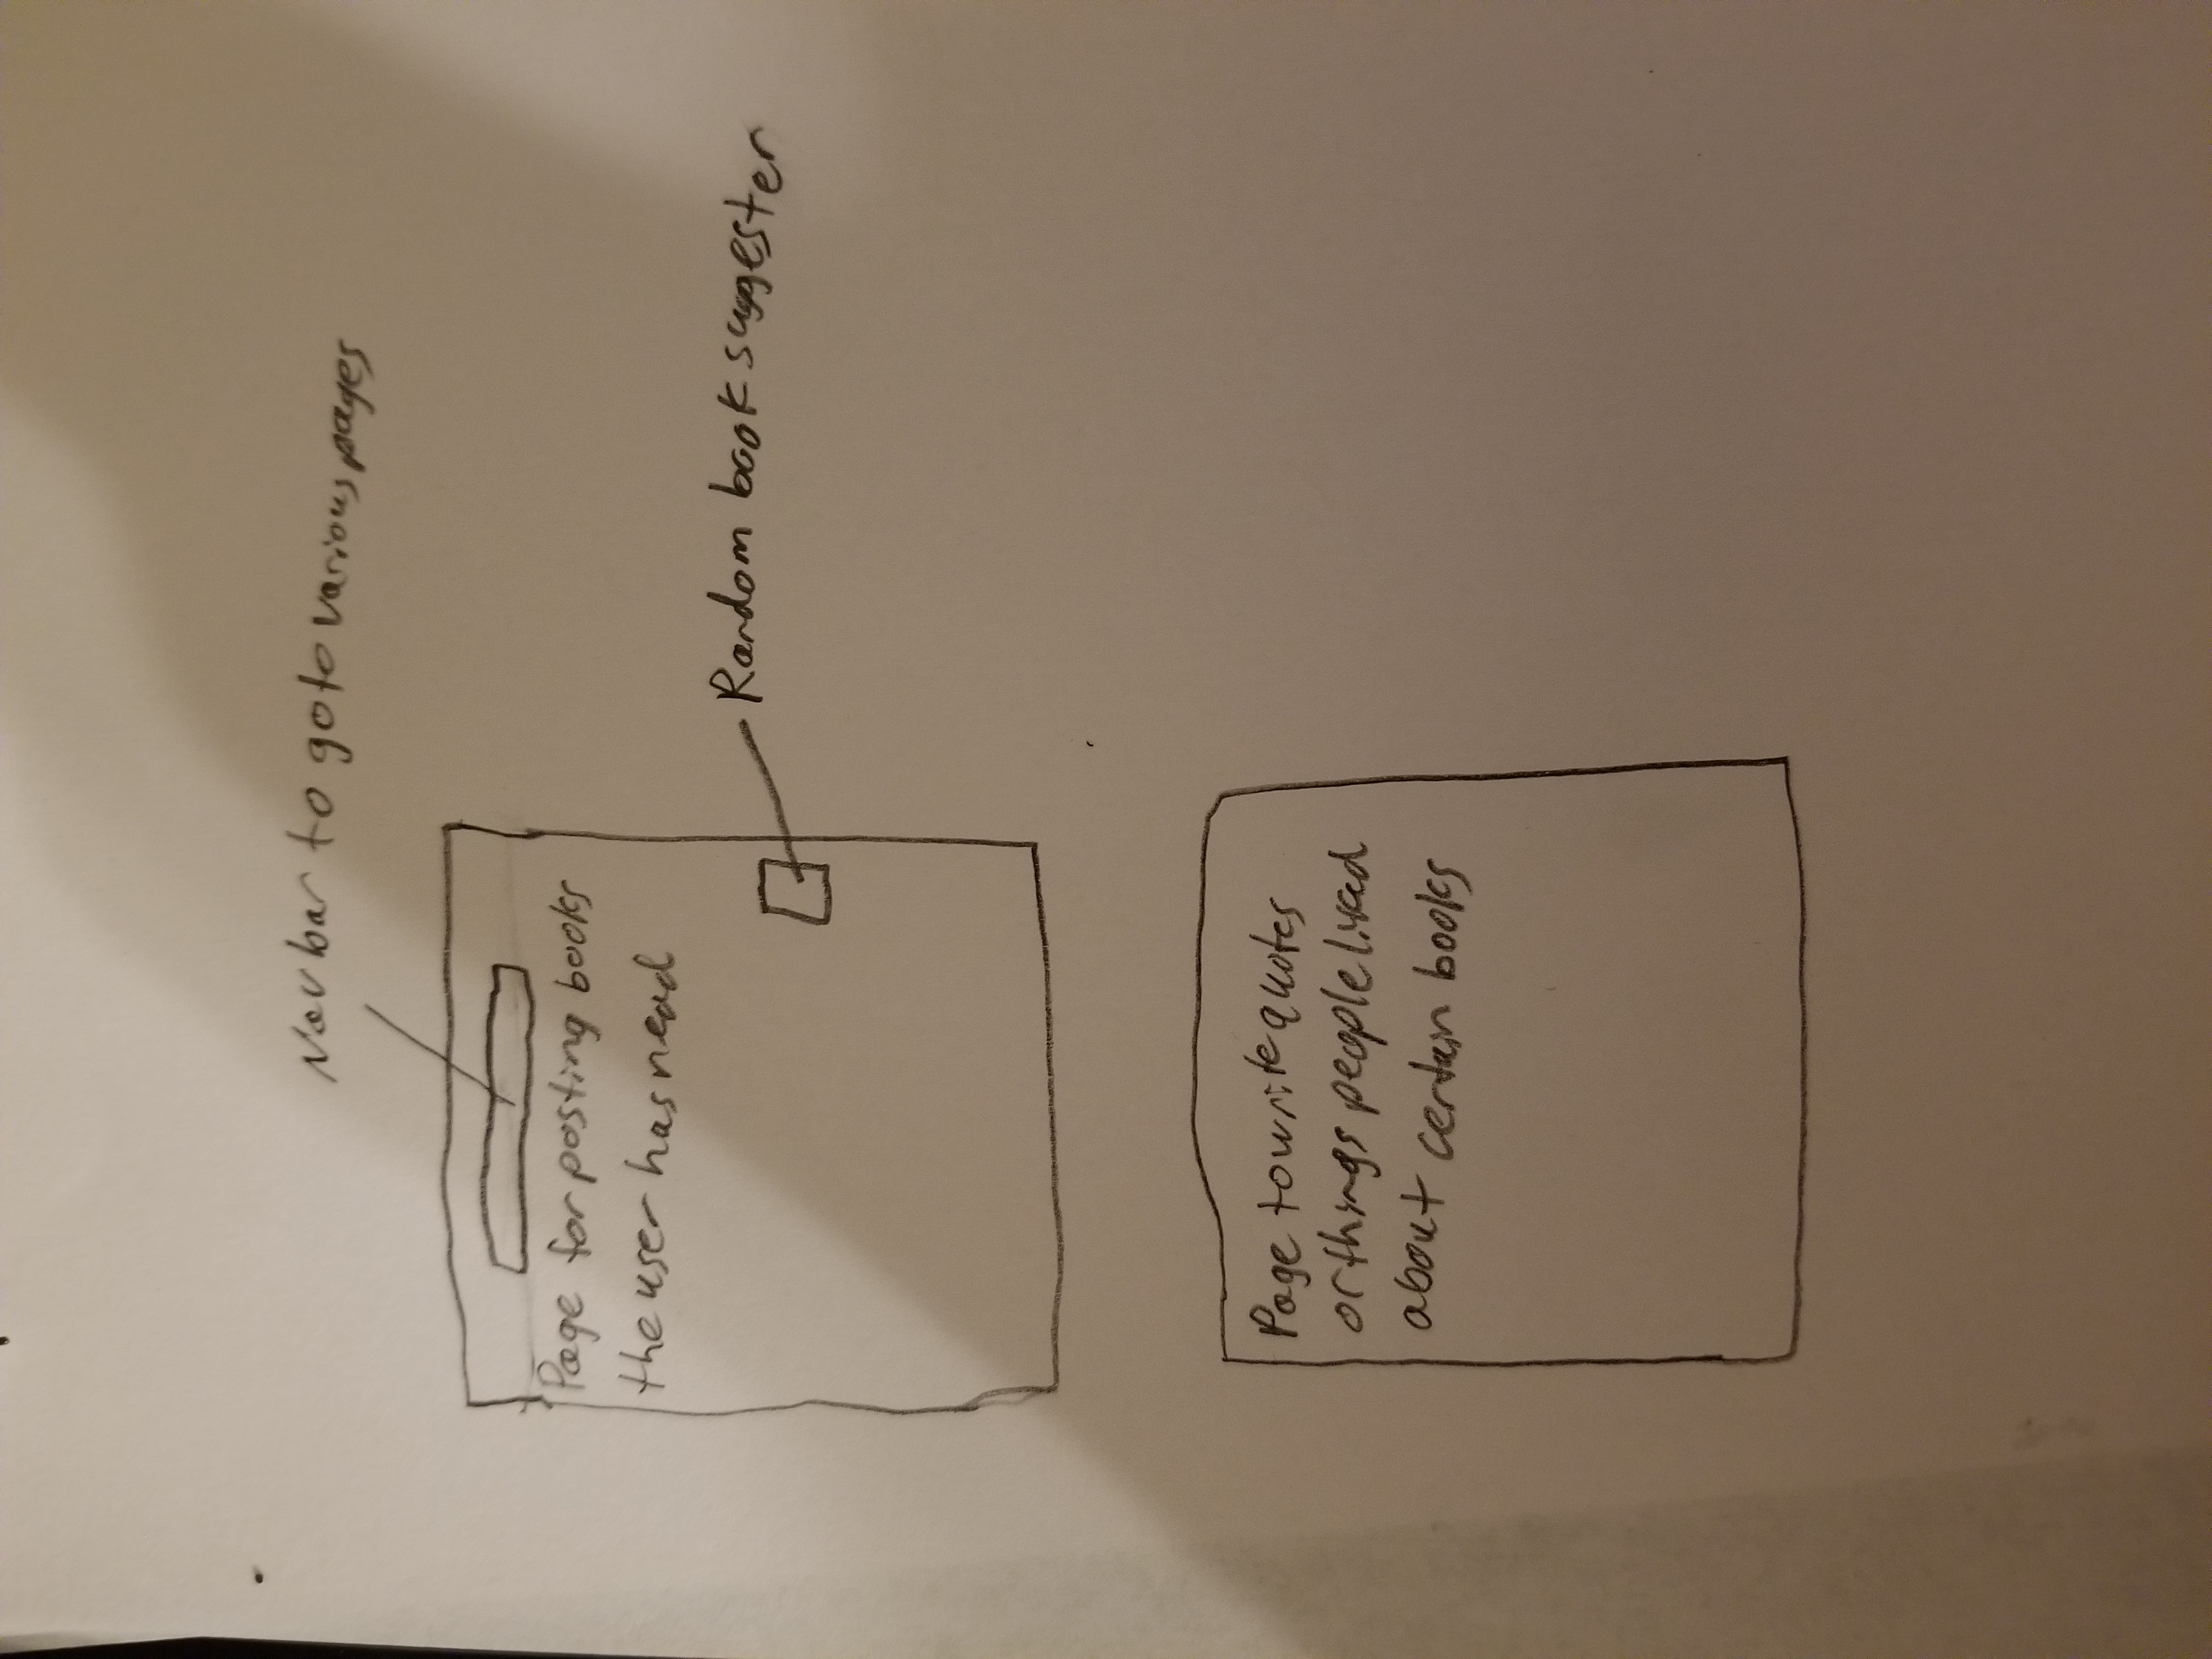 Nav bar to go to various pages
Page for posting books
the user has read
Random book suggester
Page to write quotes
or things people liked
about certain books